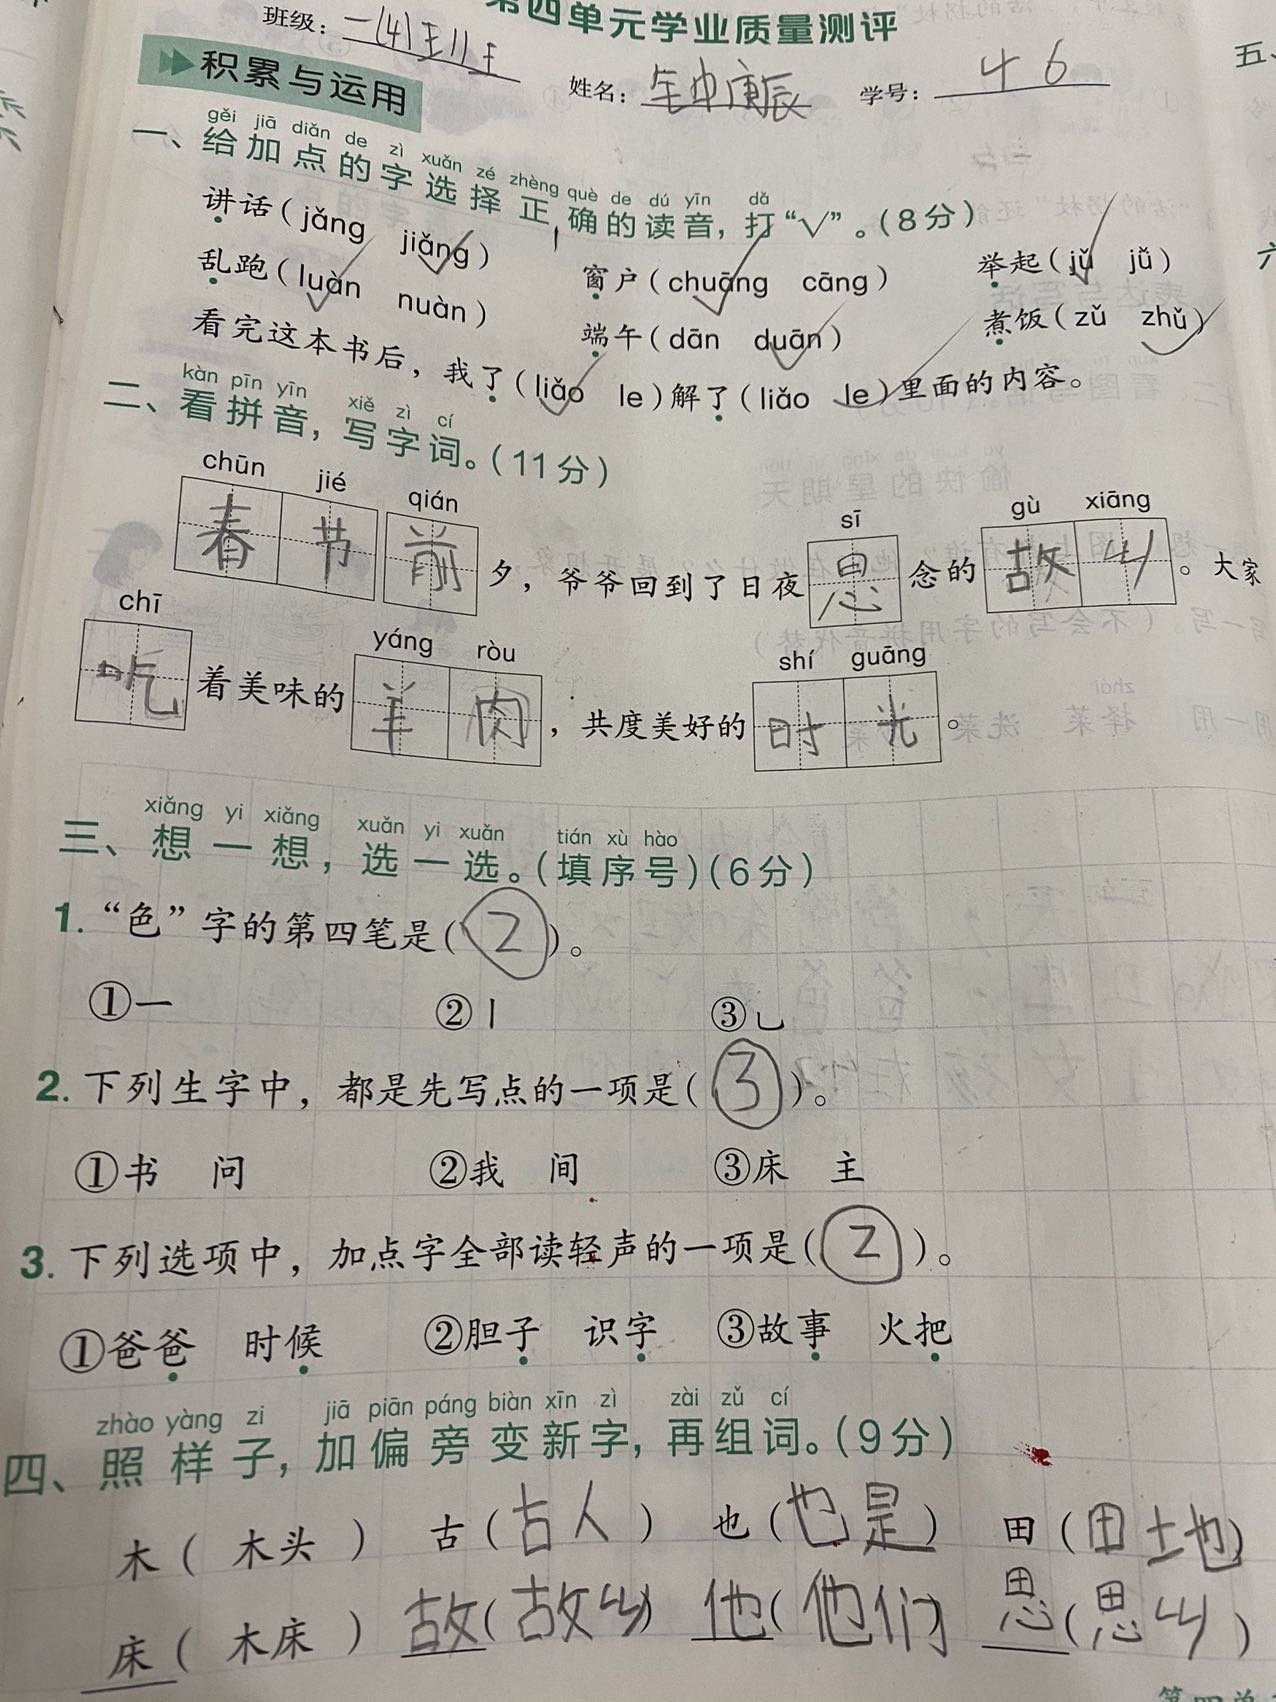 第四单元学业质量测评
班级: 一(4)王11王 姓名: 庚辰 学号: 46
积累与运用
gěi jiā diǎn de zì xuǎn zé zhèng què de dú yīn dǎ
一、给加点的字选择正确的读音，打“√”。(8分)
讲话(jǎng jiǎng) 窗户(chuāng cāng) 举起(jǔ jǔ)
乱跑(luàn nuàn) 端午(dān duān) 煮饭(zǔ zhǔ)
看完这本书后，我了(liǎo le)解了(liǎo le)里面的内容。
kàn pīn yīn xiě zì cí
二、看拼音，写字词。(11分)
chūn jié qián sī gù xiāng
春节前夕，爷爷回到了日夜思念的故乡。大家
chī yáng ròu shí guāng
吃着美味的羊肉，共度美好的时光。
xiǎng yi xiǎng xuǎn yi xuǎn tián xù hào
三、想一想，选一选。(填序号)(6分)
1. “色”字的第四笔是(2)。
①一 ②丨 ③乚
2. 下列生字中，都是先写点的一项是(3)。
①书 问 ②我 间 ③床 主
3. 下列选项中，加点字全部读轻声的一项是(2)。
①爸爸 时候 ②胆子 识字 ③故事 火把
zhào yàng zi jiā piān páng biàn xīn zì zài zǔ cí
四、照样子，加偏旁变新字，再组词。(9分)
木(木头) 古(古人) 也(也是) 田(田土地)
床(木床) 故(故乡) 他(他们) 思(思乡)